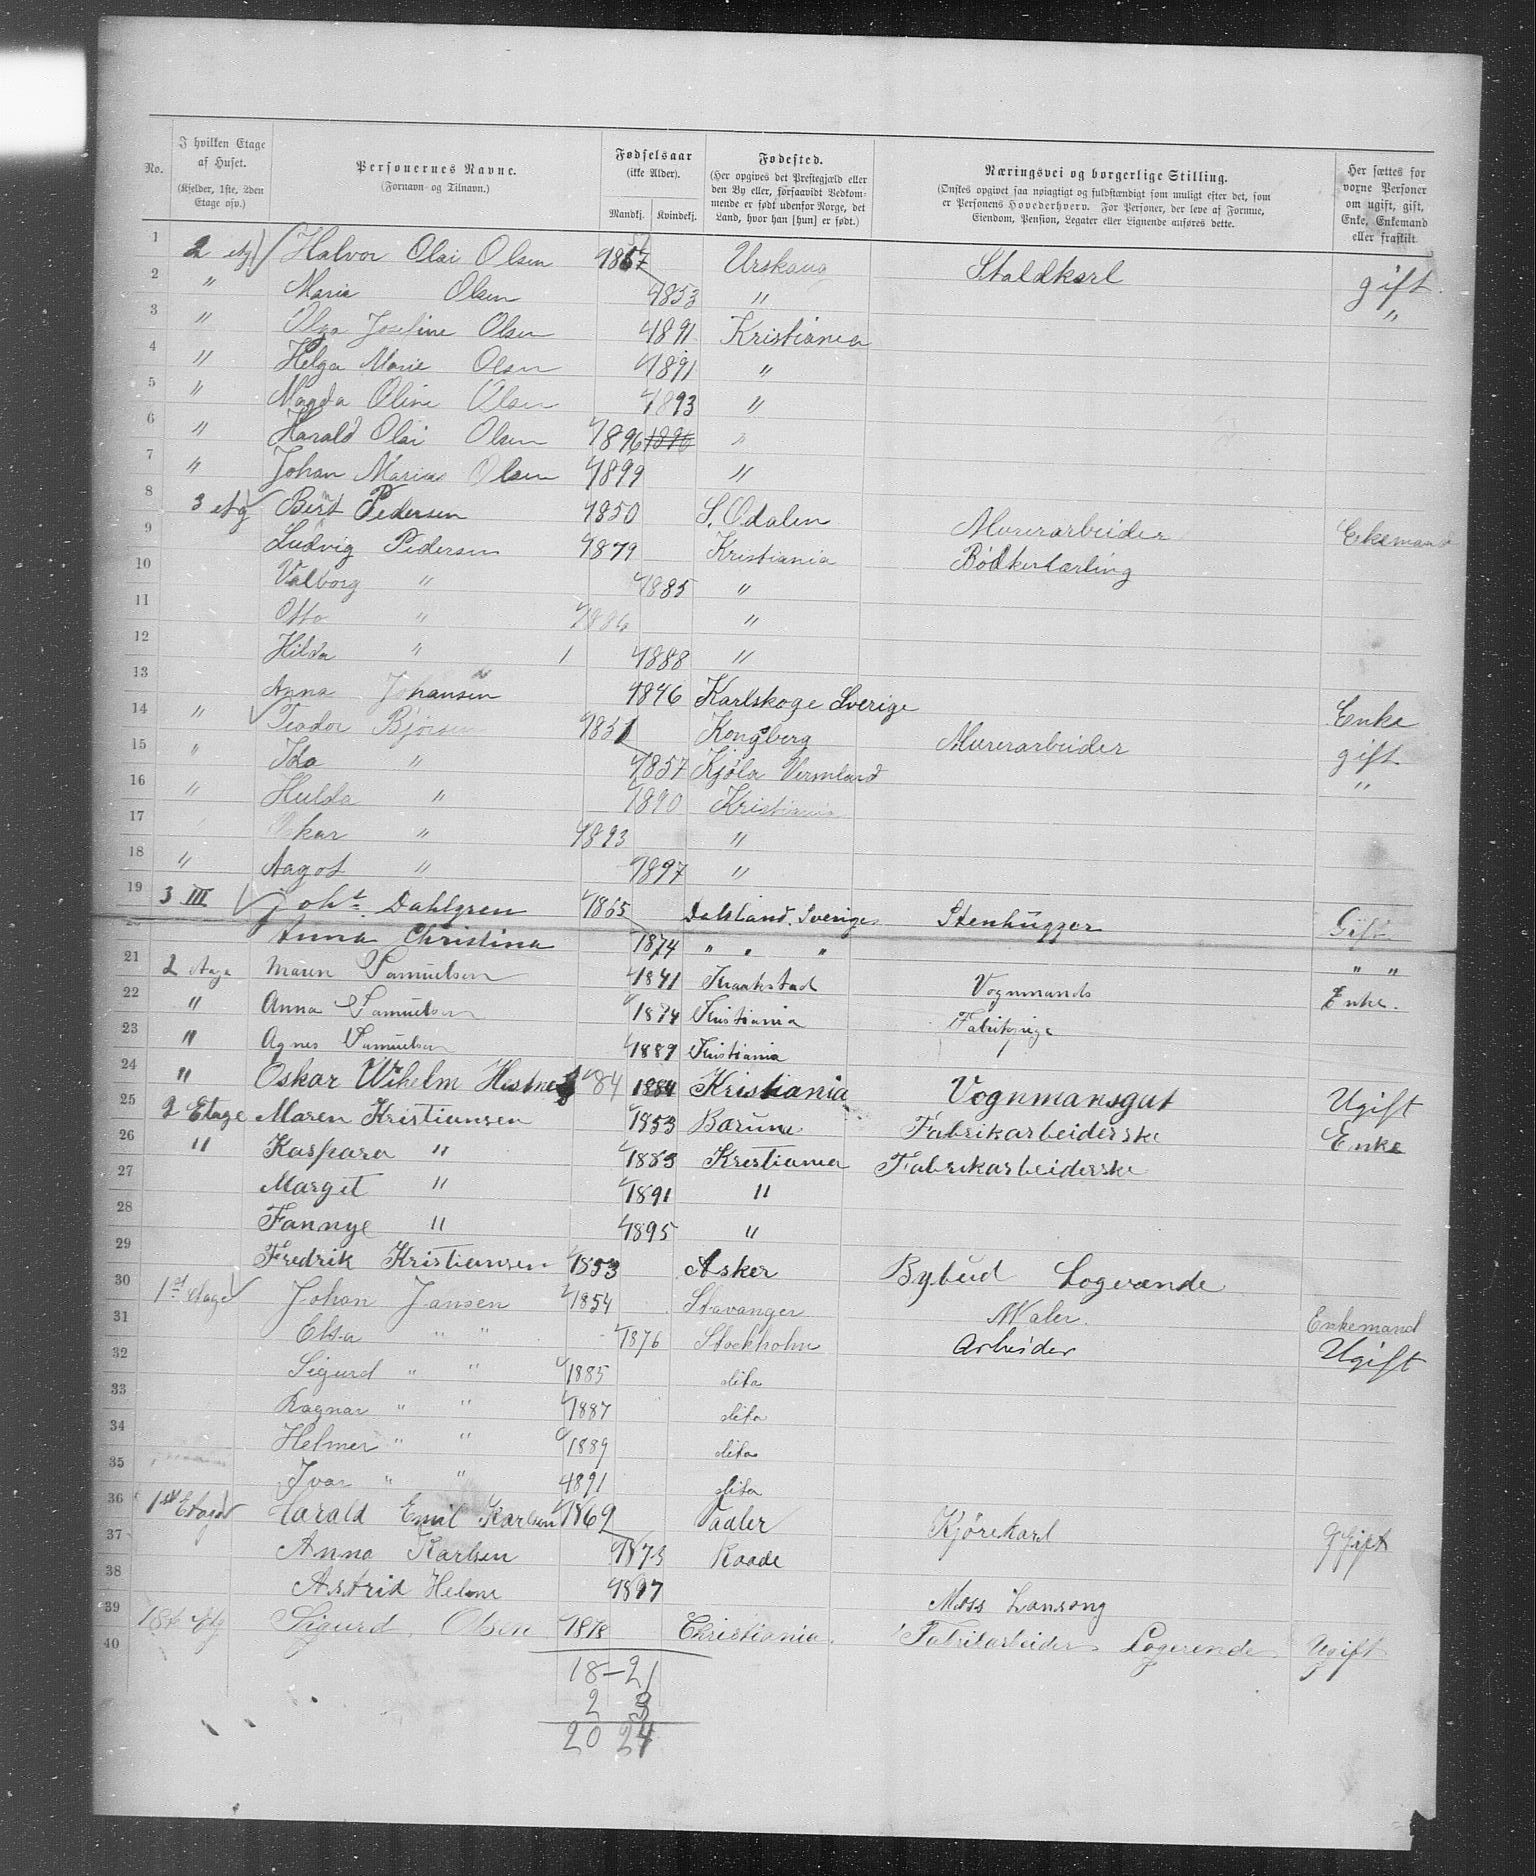 No.
I hvilken Etage af Huset. (Kjelder, 1ste, 2den Etage osv.)
Personernes Navne. (Fornavn- og Tilnavn.)
Fødselsaar (ikke Alder). Mandkj. Kvindekj.
Fødested. (Her opgives det Prestegjæld eller den By eller, forsaavidt Vedkommende er født udenfor Norge, det Land, hvor han [hun] er født.)
Næringsvei og borgerlige Stilling. (Ønskes opgivet saa nøiagtigt og fuldstændigt som muligt efter det, som er Personens Hovederhverv. For Personer, der leve af Formue, Eiendom, Pension, Legater eller Lignende anføres dette.
Her sættes for vorne Personer om ugift, gift, Enke, Enkemand eller fraskilt.
1 2 etg Halvor Olai Olsen 1857 Urskoug Staldkarl gift.
2 " Maria Olsen 1853 " "
3 " Olga Josefine Olsen 1891 Kristiania
4 " Helga Marie Olsen 1891 "
5 " Magda Oline Olsen 1893 "
6 " Harald Olai Olsen 1896 1896 "
7 " Johan Marius Olsen 1899 "
8 3 etg Bernt Pedersen 1850 S. Odalen Murerarbeider Enkemand
9 Ludvig Pedersen 1879 Kristiania Bødkerlærling
10 Valborg " 1885 "
11 Otto " 1886 "
12 Hilda " 1888 "
13 Anna Johansen 1846 Karlskoge Sverige Enke
14 " Teodor Bjørsen 1851 Kongsberg Murerarbeider gift
15 " Ida " 1857 Kjøla Vermland "
16 " Hulda " 1890 Kristiania
17 Oskar " 1893 "
18 " Aagot " 1897 "
19 3 III Joht. Dahlgren 1865 Dalsland. Sverige Stenhugger Gift
20 Anna Christina 1874 " " " " "
21 2 Etage Maren Samuelsen 1841 Kraakstad Vognmands Enke.
22 " Anna Samuelsen 1874 Kristiania Fabrikpige
23 " Agnes Samuelsen 1889 Kristiania
24 " Oskar Wihelm 84 1884 Kristiania Vognmansgut Ugift
25 2 Etage Maren Kristiansen 1853 Bærum Fabrikarbeiderske Enke
26 " Kaspara " 1883 Kristiania Fabrikarbeiderske
27 Margit " 1891 "
28 Fannye " 1895 "
29 Fredrik Kristiansen 1853 Asker Bybud Logerende
30 1st etage Johan Jansen 1854 Stavanger Maler. Enkemand
31 Elsa " " 1876 Stockholm Arbeider Ugift
32 Sigurd " " 1885 dito
33 Ragnar " " 1887 dito
34 Helmer " " 1889 dito
35 Ivar " " 1891 dito
36 1st Etage Harald Emil Karlsen 1869 Vaaler Kjørekarl gift
37 Anna Karlsen 1873 Raade
38 Astrid Helene 1897 Moss
39 1ste Etg Sigurd Olsen 1878 Christiania. Fabrikarbeider Logerende Ugift
40
18 - 21
2 3
20 24